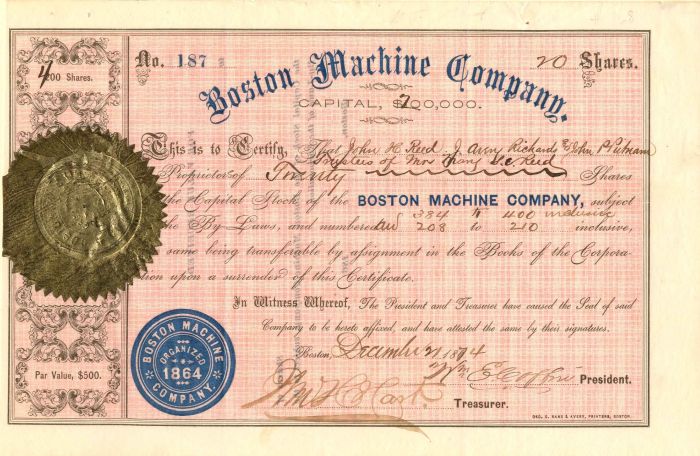 400 Shares.
No. 187
20 Shares.
Boston Machine Company.
CAPITAL, $200,000.
This is to Certify, That John H Reed J Avery Richards & John P Putnam
Trustees of Mrs Reed
Proprietor of Twenty Shares
the Capital Stock of the BOSTON MACHINE COMPANY, subject
384 to 400 inclusive
the By-Laws, and numbered and 208 to 210 inclusive,
same being transferable by assignment in the Books of the Corpora-
tion upon a surrender of this Certificate.
In Witness Whereof, The President and Treasurer have caused the Seal of said
Company to be hereto affixed, and have attested the same by their signatures.
Boston, December 21 1874
Wm E Coffin President.
Treasurer.
BOSTON MACHINE
ORGANIZED
1864
COMPANY.
Par Value, $500.
GEO. C. RAND & AVERY, PRINTERS, BOSTON.